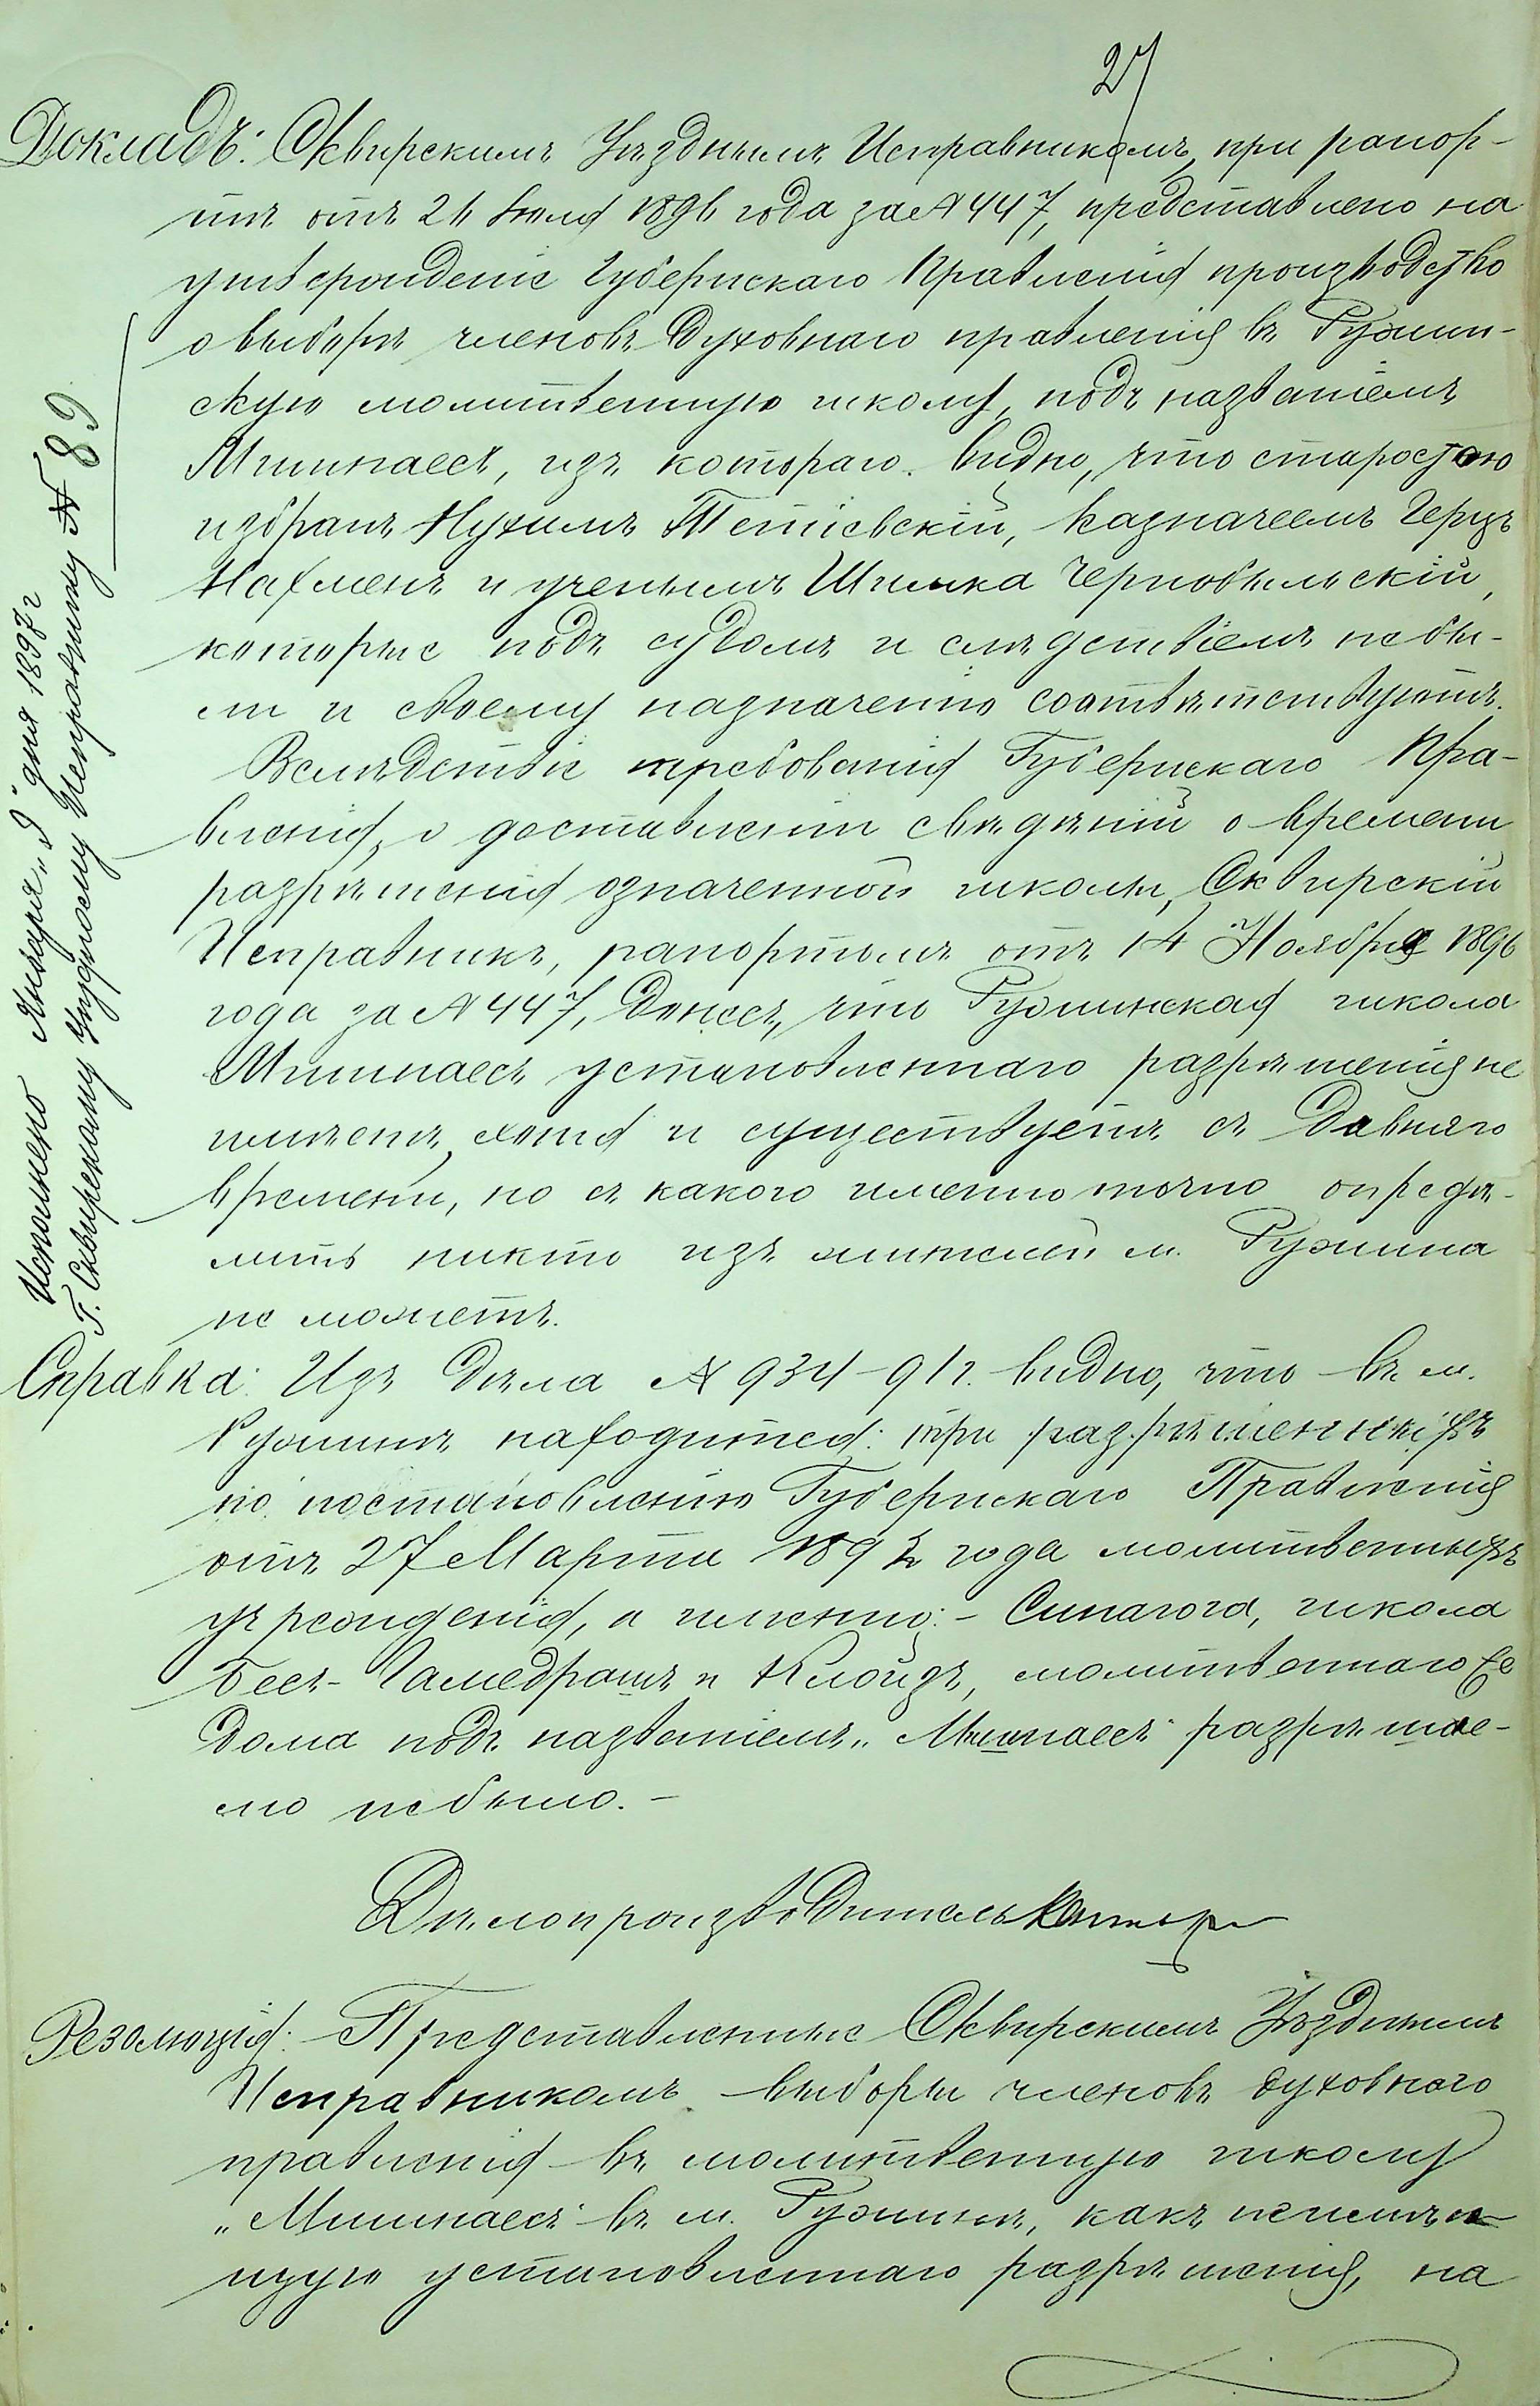 27
Докладъ: Сквирскимъ Уѣзднымъ Исправникомъ, при рапор-
тѣ отъ 21 Іюля 1896 года за № 447, представлено на
утвержденіе Губернскаго Правленія производство
о выборѣ членовъ духовнаго правленія въ Ружин-
скую молитвенную школу, подъ названіемъ
Мишнаесъ, изъ котораго видно, что старостою
избранъ Нухимъ Тетіевскій, казначеемъ Герцъ
Нахменъ и ученымъ Шимка Чернобыльскій,
которые подъ судомъ и слѣдствіемъ не бы-
ли и своему назначенію соотвѣтствуютъ.
Вслѣдствіе требованія Губернскаго Пра-
вленія, о доставленіи свѣдѣній о времени
разрѣшенія означенной школы, Сквирскій
Исправникъ, рапортомъ отъ 14 Ноября 1896
года за № 447, донесъ, что Ружинская школа
Мишнаесъ установленнаго разрѣшенія не
имѣетъ, хотя и существуетъ съ давняго
времени, но съ какого именно точно опредѣ-
лить никто изъ жителей м. Ружина
не можетъ.
Справка: Изъ дѣла № 934-91 г. видно, что въ м.
Ружинѣ находится: три разрѣшенныхъ
по постановленію Губернскаго Правленія
отъ 27 Марта 1892 года молитвенныхъ
учрежденія, а именно:- Синагога, школа
Бес-Гамедрашъ и Клойзъ, молитвеннаго же
дома подъ названіемъ "Мишнаесъ" разрѣшае-
мо не было.-
Дѣлопроизводитель
Резолюція: Представленные Сквирскимъ Уѣзднымъ
Исправникомъ выборы членовъ духовнаго
правленія въ молитвенную школу
"Мишнаесъ" въ м. Ружинѣ, какъ неимѣю-
щую установленнаго разрѣшенія, на
Исполнено Января "9" дня 1897 г
Г. Сквирскому Уѣздному Исправнику № 89